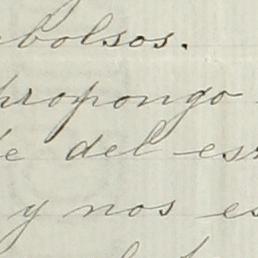 bolsos.
propongo
e del es
y nos es